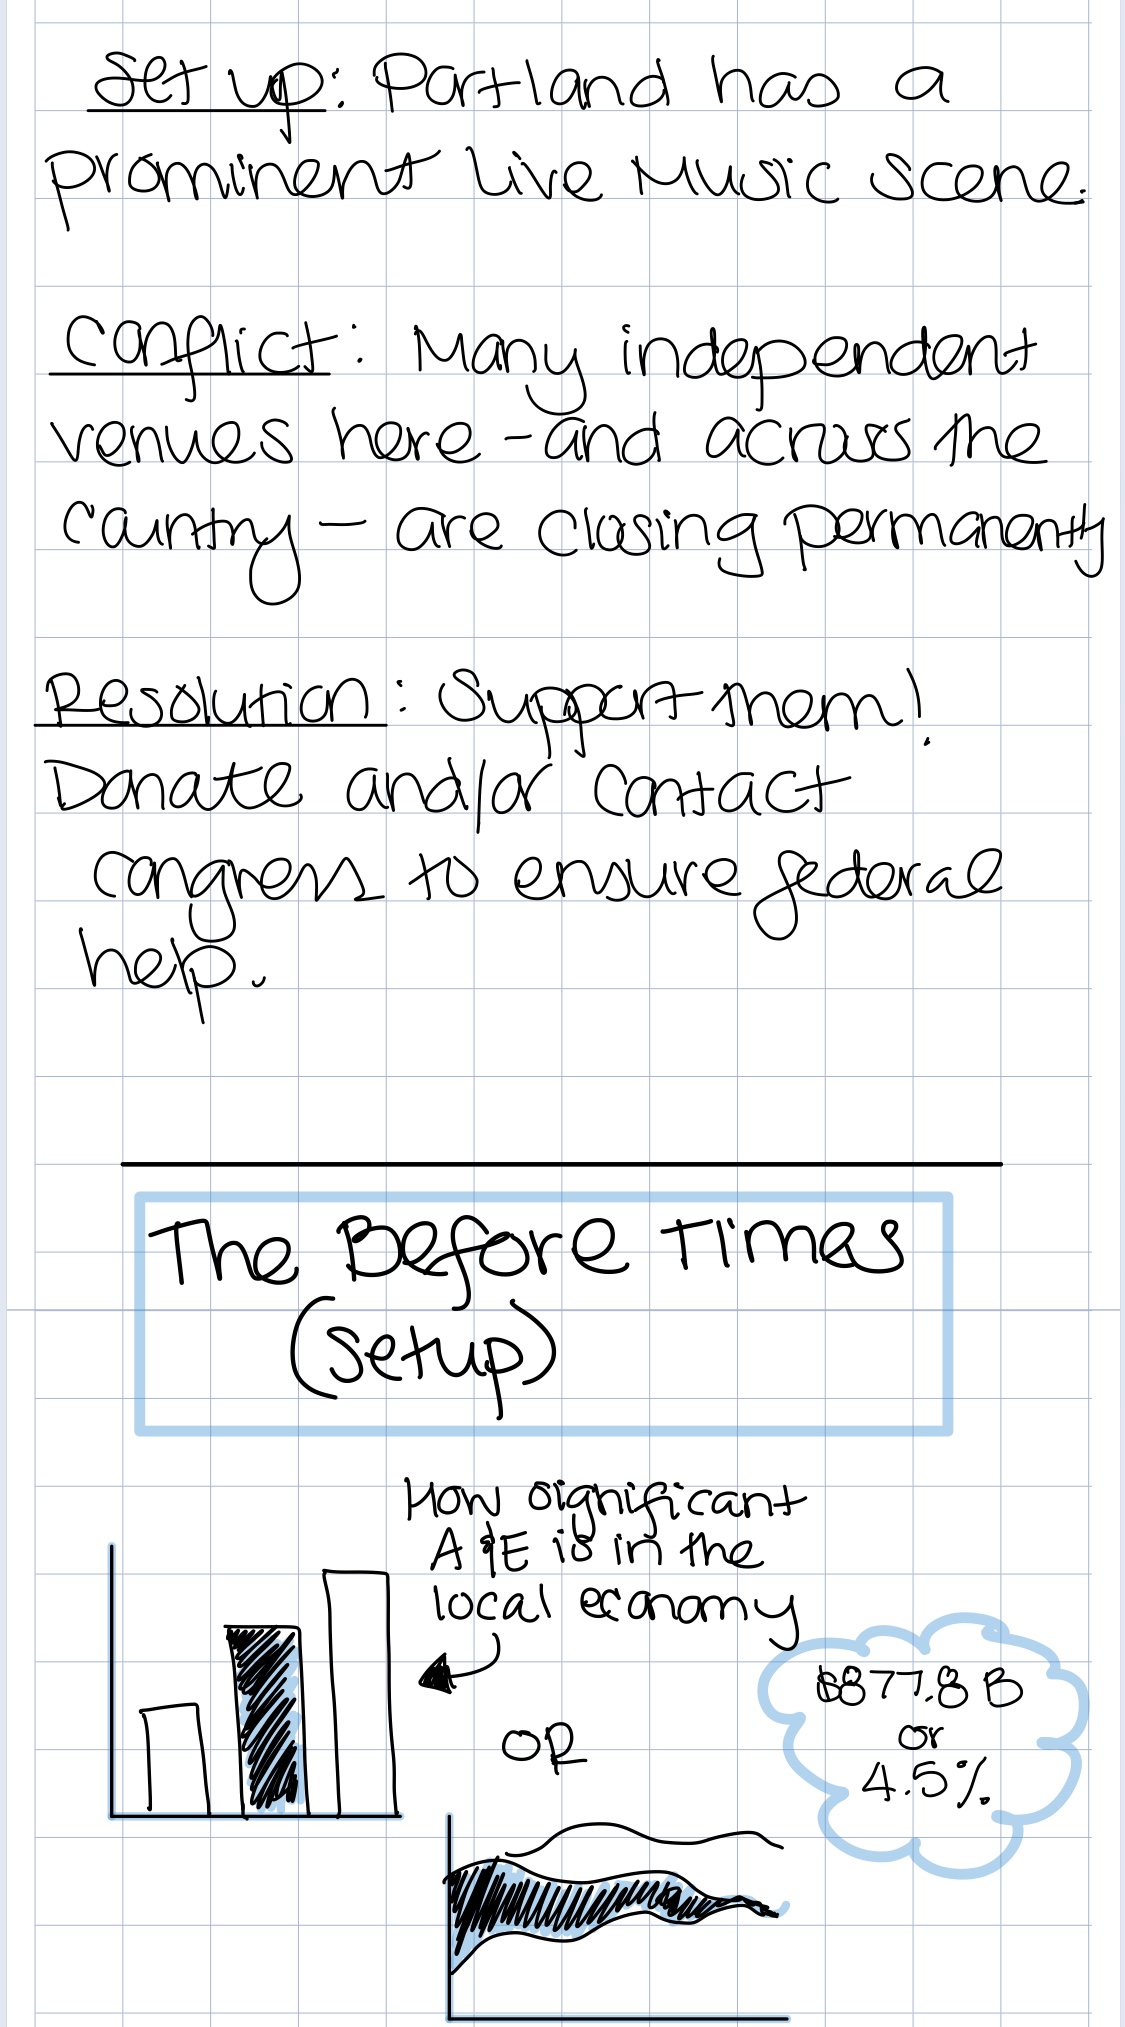 Set up: Portland has a
prominent Live Music Scene.
Conflict: Many independent
venues here - and across the
country - are closing permanently
Resolution: Support them!
Donate and/or contact
congress to ensure federal
help.
The Before Times
(Setup)
How significant
A&E is in the
local economy
OR
$877.8 B
or
4.5%